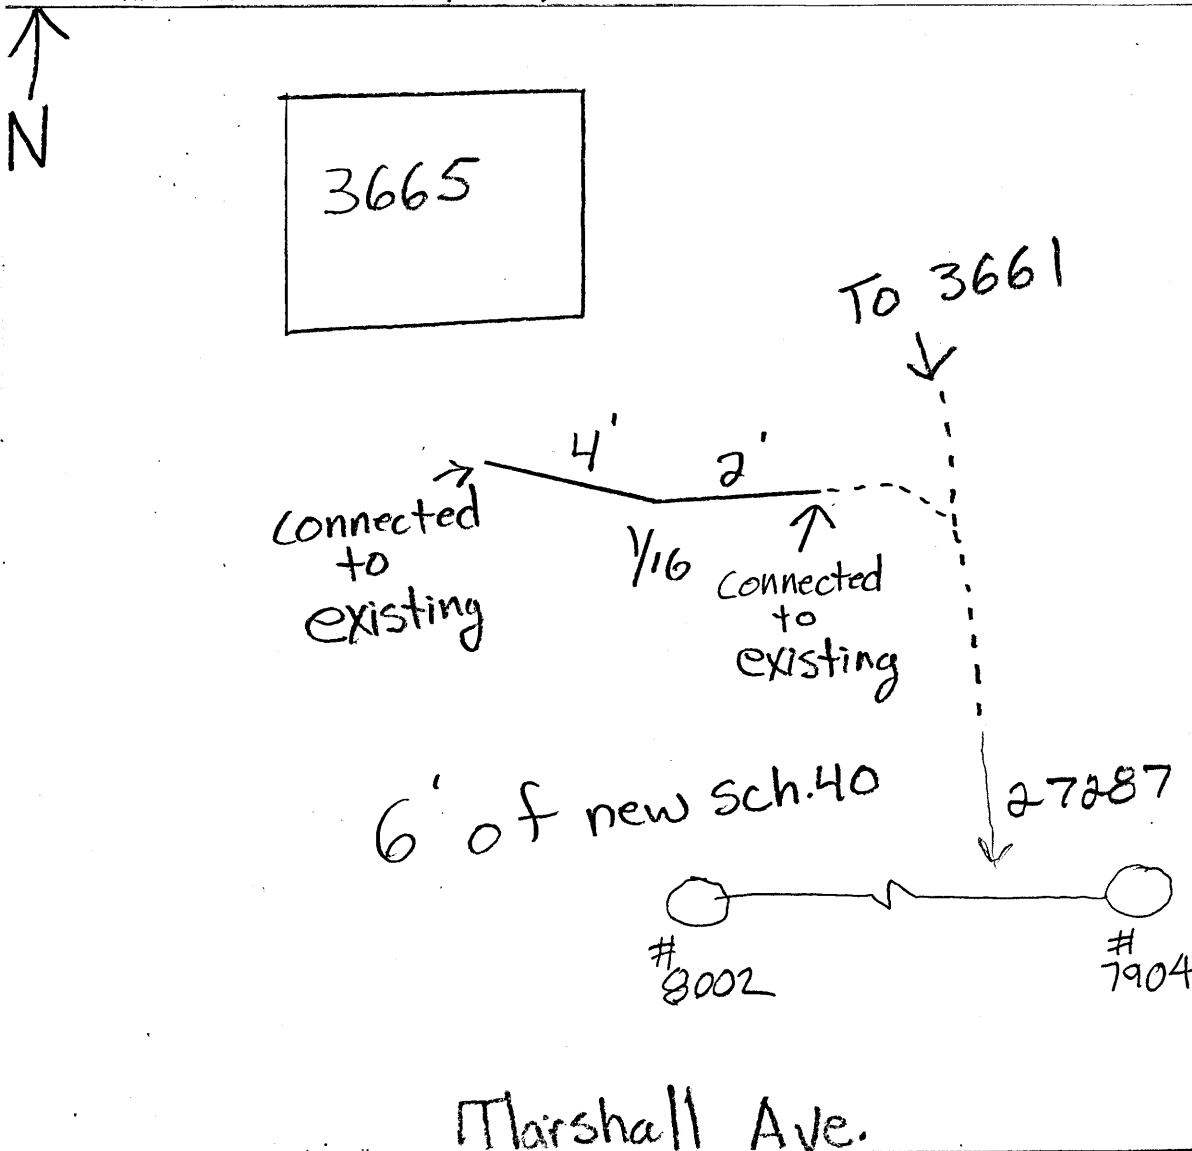 N
3665
To 3661
4'
2'
1/16
connected
to
existing
connected
to
existing
6' of new sch.40
27287
#
8002
#
7904
Marshall Ave.